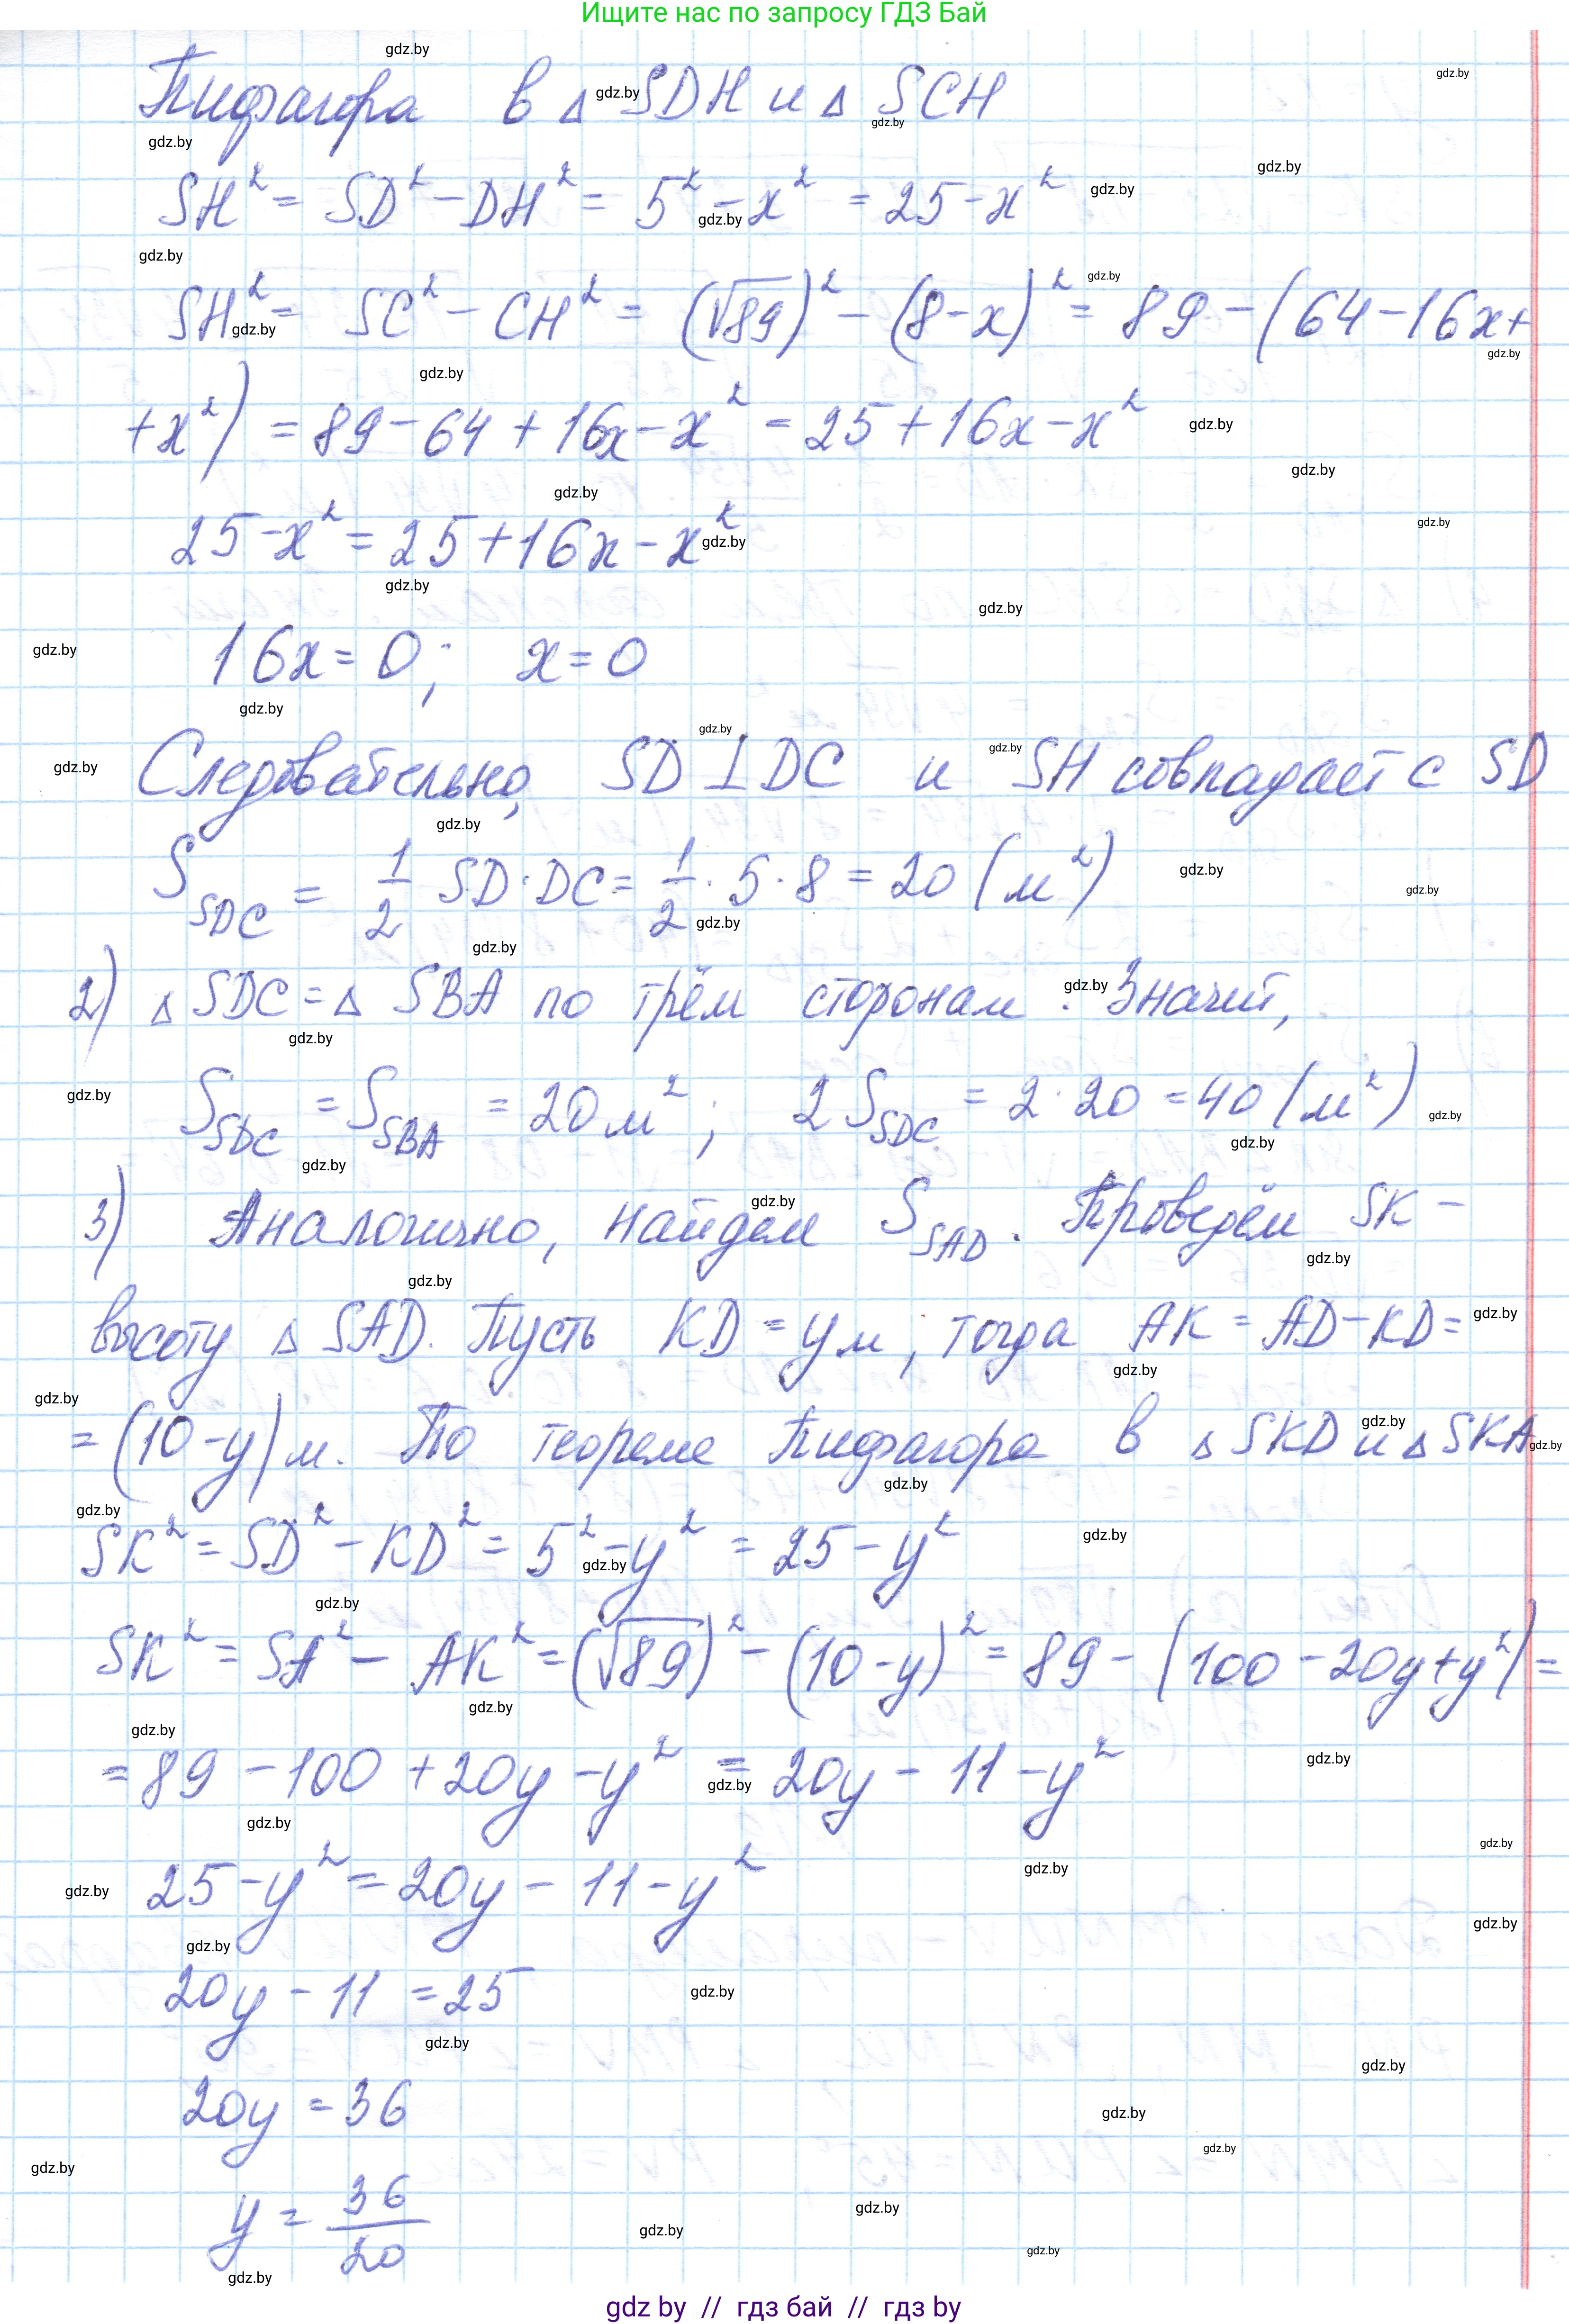 Ищите нас по запросу ГДЗ Бай
Пифагора в △ SDH и △ SCH
SH² = SD² - DH² = 5² - x² = 25 - x²
SH² = SC² - CH² = (√89)² - (8-x)² = 89 - (64 - 16x +
+ x²) = 89 - 64 + 16x - x² = 25 + 16x - x²
25 - x² = 25 + 16x - x²
16x = 0; x = 0
Следовательно, SD ⊥ DC и SH совпадает с SD
S_SDC = 1/2 SD · DC = 1/2 · 5 · 8 = 20 (м²)
2) △ SDC = △ SBA по трём сторонам. Значит,
S_SDC = S_SBA = 20 м²; 2 S_SDC = 2 · 20 = 40 (м²)
3) Аналогично, найдем S_SAD. Проведём SK -
высоту △ SAD. Пусть KD = y м, тогда AK = AD - KD =
= (10 - y) м. По теореме Пифагора в △ SKD и △ SKA
SK² = SD² - KD² = 5² - y² = 25 - y²
SK² = SA² - AK² = (√89)² - (10 - y)² = 89 - (100 - 20y + y²) =
= 89 - 100 + 20y - y² = 20y - 11 - y²
25 - y² = 20y - 11 - y²
20y - 11 = 25
20y = 36
y = 36/20
gdz by // гдз бай // гдз by